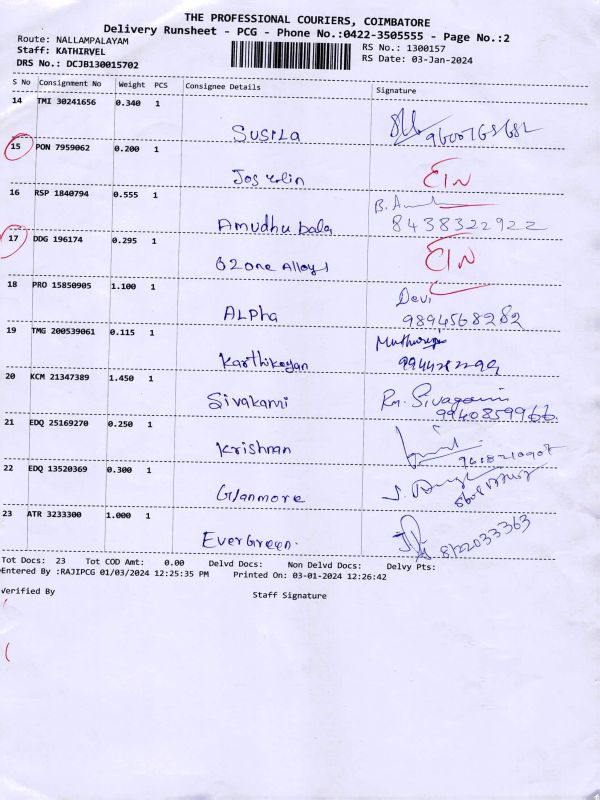 THE PROFESSIONAL COURIERS, COIMBATORE
Delivery Runsheet - PCG - Phone No.:0422-3505555 - Page No.:2
Route: NALLAMPALAYAM
Staff: KATHIRVEL
DRS No.: DCJB130015702
RS No.: 1300157
RS Date: 03-Jan-2024
S No Consignment No Weight PCS Consignee Details Signature
14 TMI 30241656 0.340 1
Susila
15 PON 7959062 0.200 1
EIN
16 RSP 1840794 0.555 1
Amudhu bala 8438322922
17 DDG 196174 0.295 1
Ozone Alloys EIN
18 PRO 15850905 1.100 1
Devi
ALPha 9894568282
19 TMG 200539061 0.115 1
Karthikeyan
20 KCM 21347389 1.450 1
Sivakami Rm. Sivagami
9940859966
21 EDQ 25169270 0.250 1
Krishnan
22 EDQ 13520369 0.300 1
Glanmore
23 ATR 3233300 1.000 1
EverGreen. 8122033363
Tot Docs: 23 Tot COD Amt: 0.00 Delvd Docs: Non Delvd Docs: Delvy Pts:
Entered By :RAJIPCG 01/03/2024 12:25:35 PM Printed On: 03-01-2024 12:26:42
Verified By Staff Signature